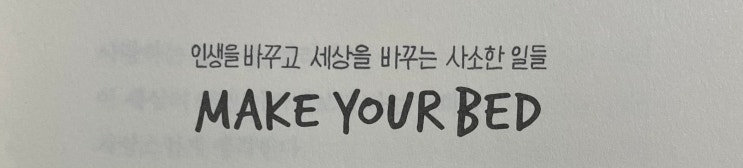 인생을 바꾸고 세상을 바꾸는 사소한 일들
MAKE YOUR BED